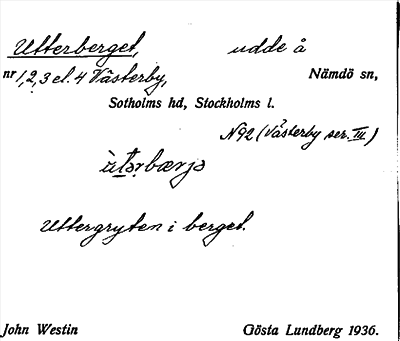 Utterberget, udde å
nr 1,2,3 el. 4 Västerby, Nämdö sn,
Sotholms hd, Stockholms l.
N92 (Västerby ser. III.)
ùtərbærjə
Uttergryten i berget.
John Westin Gösta Lundberg 1936.